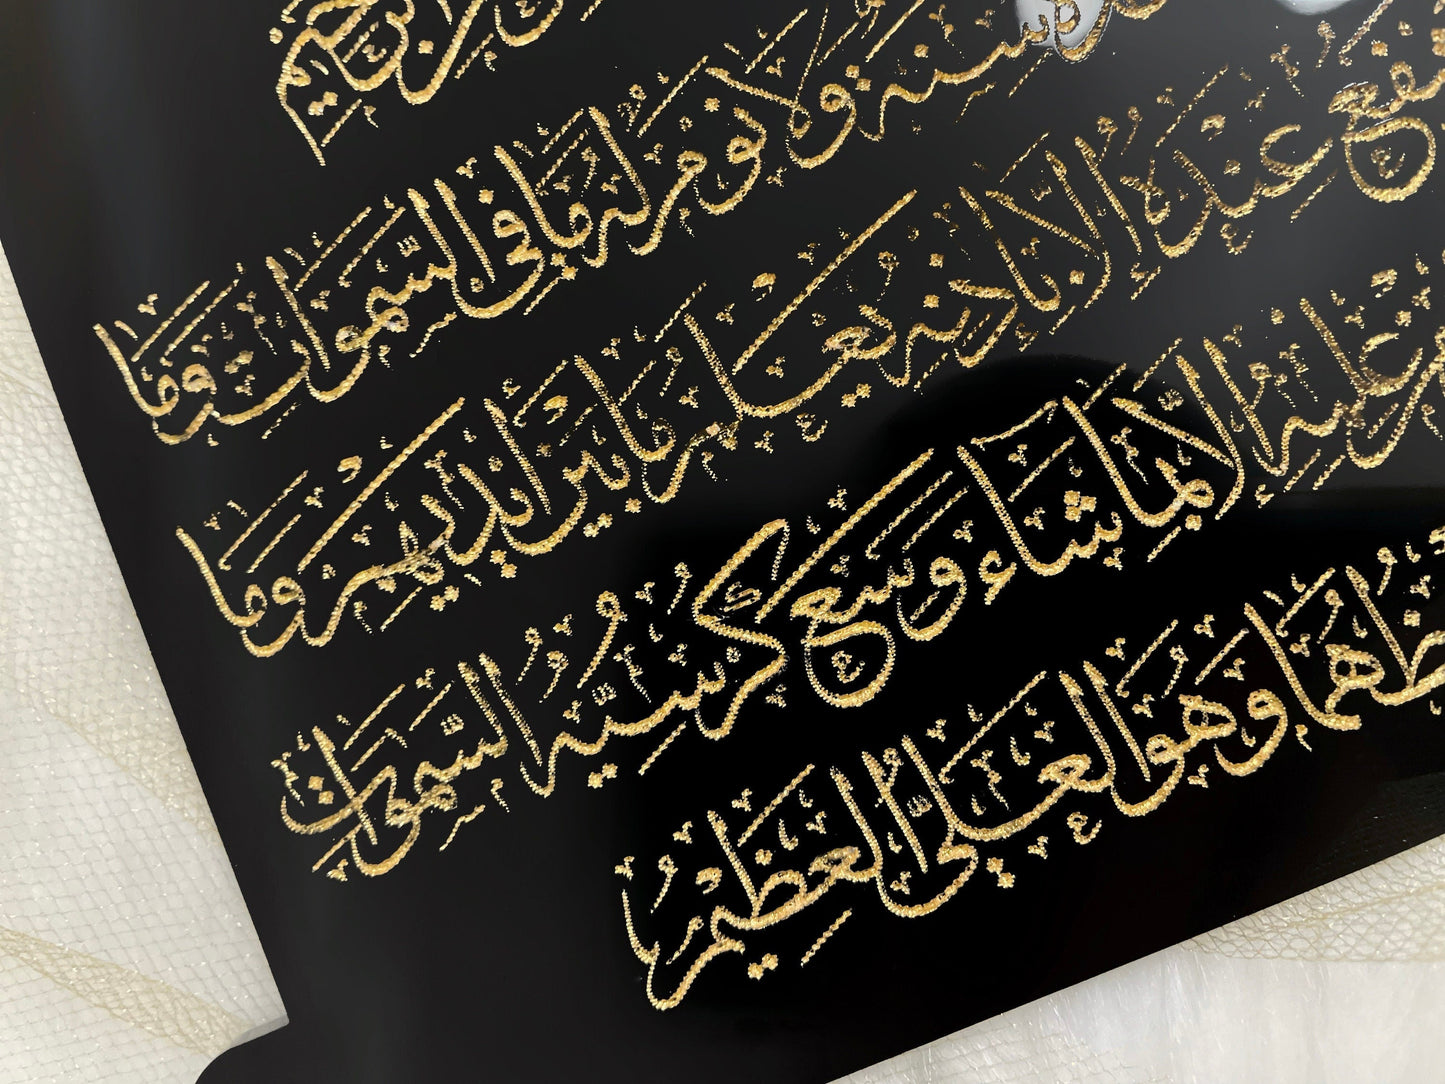 الرحيم
سنة ولا نوم له ما في السموات وما
يشفع عنده إلا بإذنه يعلم ما بين أيديهم وما
علمه إلا بما شاء وسع كرسيه السموات
حفظهما وهو العلي العظيم